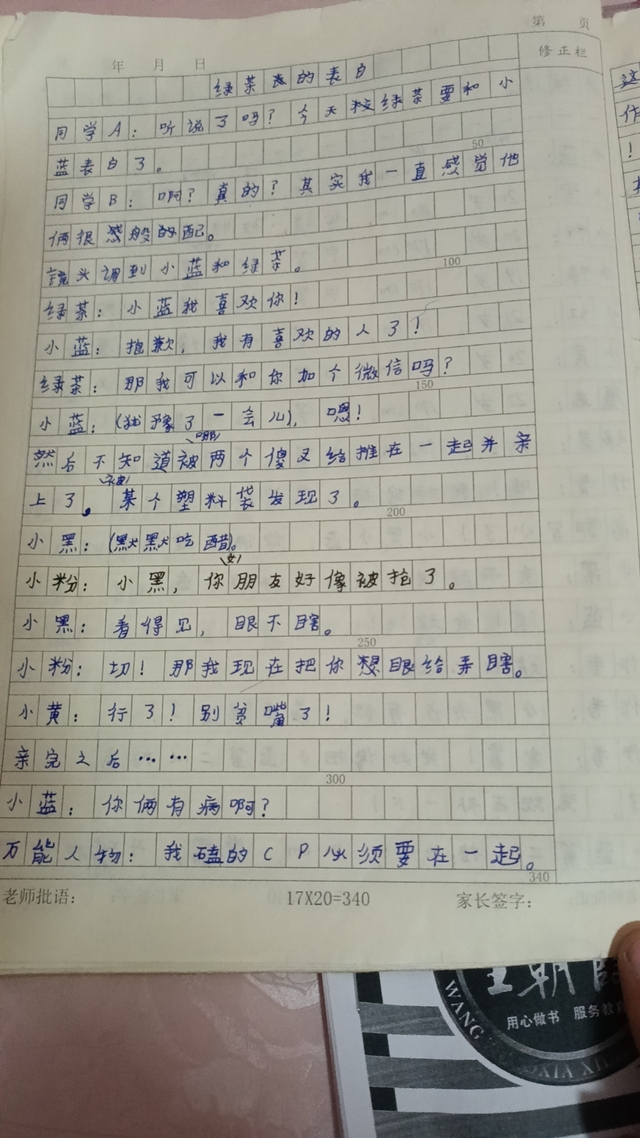 第 页
年 月 日
修正栏
绿茶表的表白
同学A：听说了吗？今天校绿茶要和小
蓝表白了。
50
同学B：啊？真的？其实我一直感觉他
俩很感般的配。
镜头调到小蓝和绿茶。
100
绿茶：小蓝我喜欢你！
小蓝：抱歉，我有喜欢的人了！
绿茶：那我可以和你加个微信吗？
150
小蓝：(犹豫了一会儿)，嗯！
然后不知道被哪两个傻叉给推在一起并亲
上了。某个塑料袋发现了。
200
小黑：(默默吃醋)。
小粉：小黑，你女朋友好像被抢了。
小黑：看得见，眼不瞎。
250
小粉：切！那我现在把你想眼给弄瞎。
小黄：行了！别贫嘴了！
亲完之后……
300
小蓝：你俩有病啊？
万能人物：我磕的CP必须要在一起。
340
老师批语：
17X20=340
家长签字：
这
作
！
WANG
用心做书 服务教育